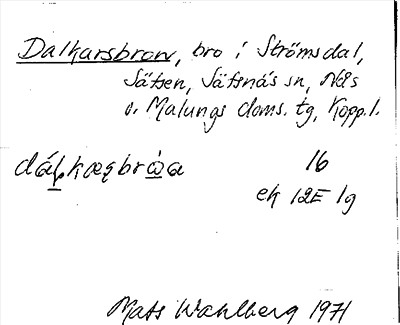 Dalkarsbron, bro i Strömsdal,
Sätsen, Sätsnäs sn, Nås
o. Malungs doms. tg, Kopp.l.
16
ek 12E 1g
Mats Wahlberg 1971